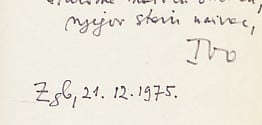 njegov stari naivac,
Ivo
Zgb, 21. 12. 1975.